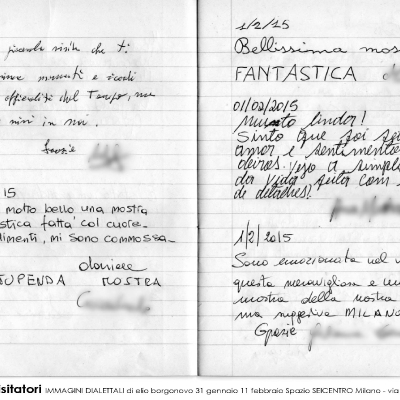 piccola visita che ti
momenti e ricordi
del Tempo, ma
vivi in noi.
Grazie
15
molto bello una mostra
stica fatta col cuore.
dimenti, mi sono commossa.
daniele
TUPENDA MOSTRA
1/2/15
Bellissima mos
FANTASTICA
01/02/2015
Muito lindo!
Sinto que soi
amor e sentimento
deiras. Vejo a simpli
da vida com
de detalhes!
1/2/2015
Sono emozionata nel v
questa meravigliosa e un
mostra della nostra
ma suggestiva MILANO
Grazie
isitatori IMMAGINI DIALETTALI di elio borgonovo 31 gennaio 11 febbraio Spazio SEICENTRO Milano - via